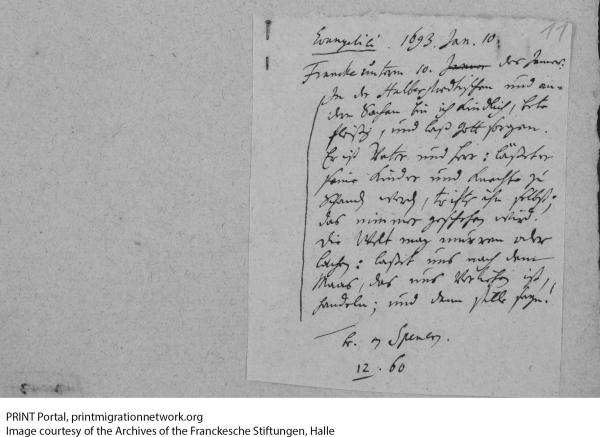 11
Evangelici. 1693. Jan. 10.
Francke unterm 10. Januar des Janua:
In der Halberstädtischen und an-
dern Sachen bin ich kindlich, bete
fleißig, und laß Gott sorgen.
Er ist Vater und Herr: läßt er
seine Kinder und Knechte zu
Schand werden, trifft ihn selbst;
das nimmer geschehen wird.
Die Welt mag murren oder
lachen: laßet uns nach dem
Maas, das uns verliehen ist,
handeln; und denn stille seyn!
Spener.
12. 60
PRINT Portal, printmigrationnetwork.org
Image courtesy of the Archives of the Franckesche Stiftungen, Halle